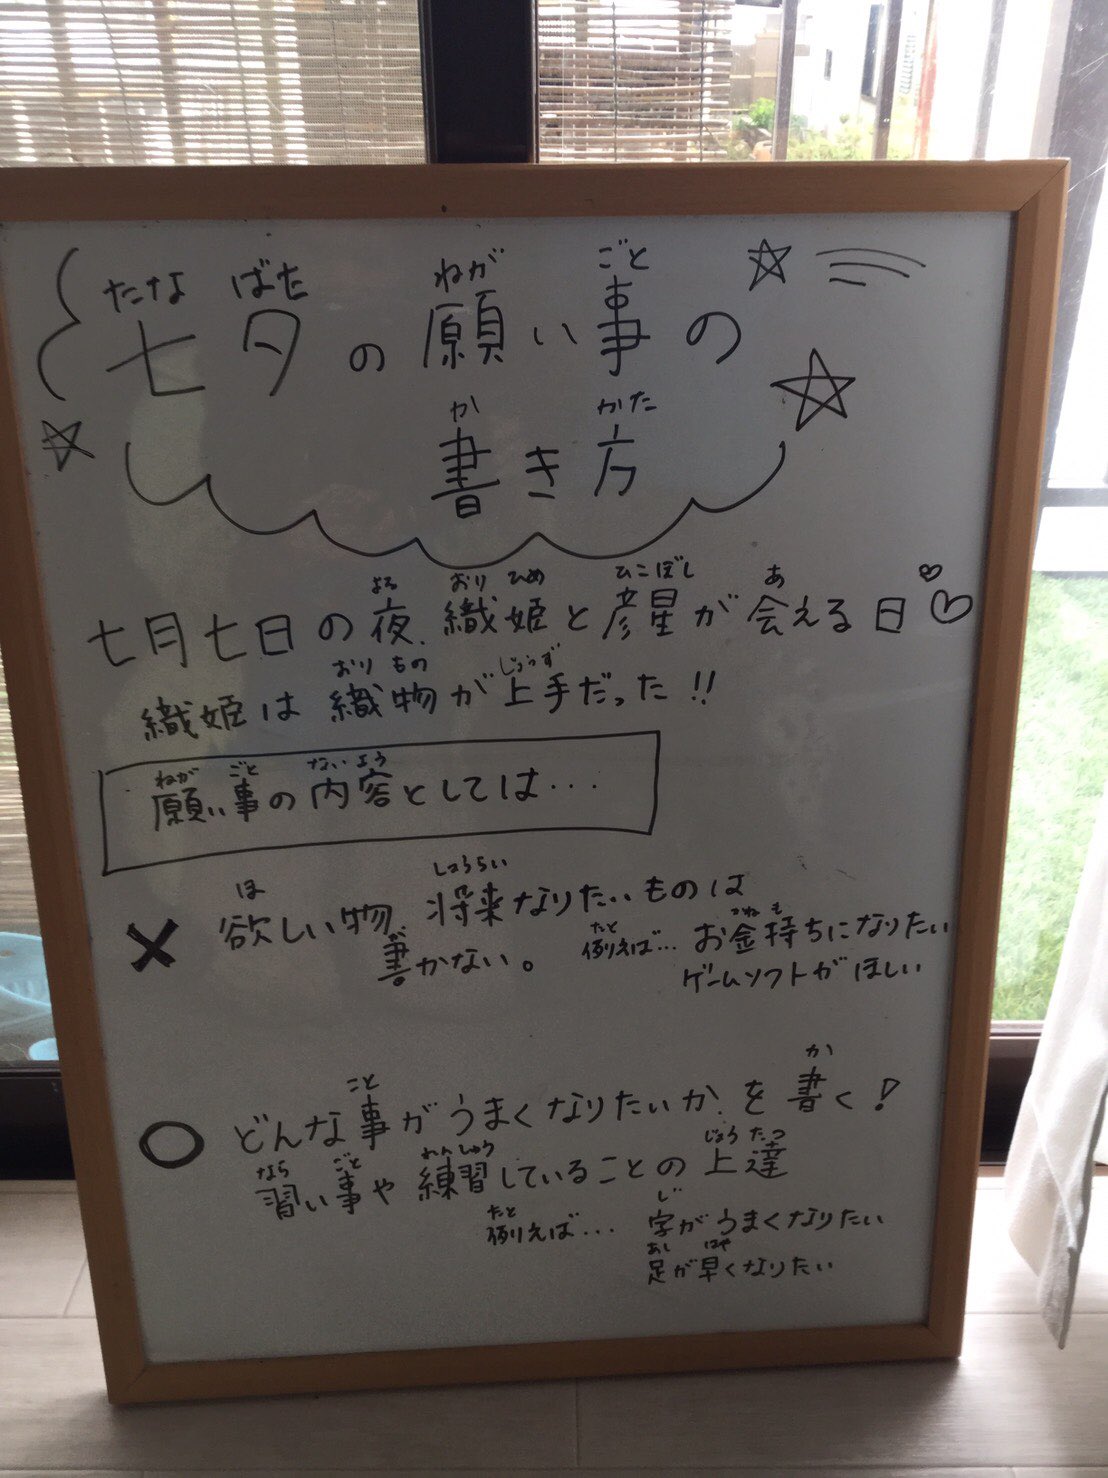 たなばた ねが ごと
七夕の願い事の
か かた
書き方
よる おりひめ ひこぼし あ
七月七日の夜、織姫と彦星が会える日♡
おりもの じょうず
織姫は織物が上手だった!!
ねが ごと ないよう
願い事の内容としては...
ほ しょうらい
× 欲しい物、将来なりたいものは
書かない。
たと かねも
例えば... お金持ちになりたい
ゲームソフトがほしい
こと か
○ どんな事がうまくなりたいか、を書く!
なら ごと れんしゅう じょうたつ
習い事や練習していることの上達
たと じ
例えば... 字がうまくなりたい
あし はや
足が早くなりたい